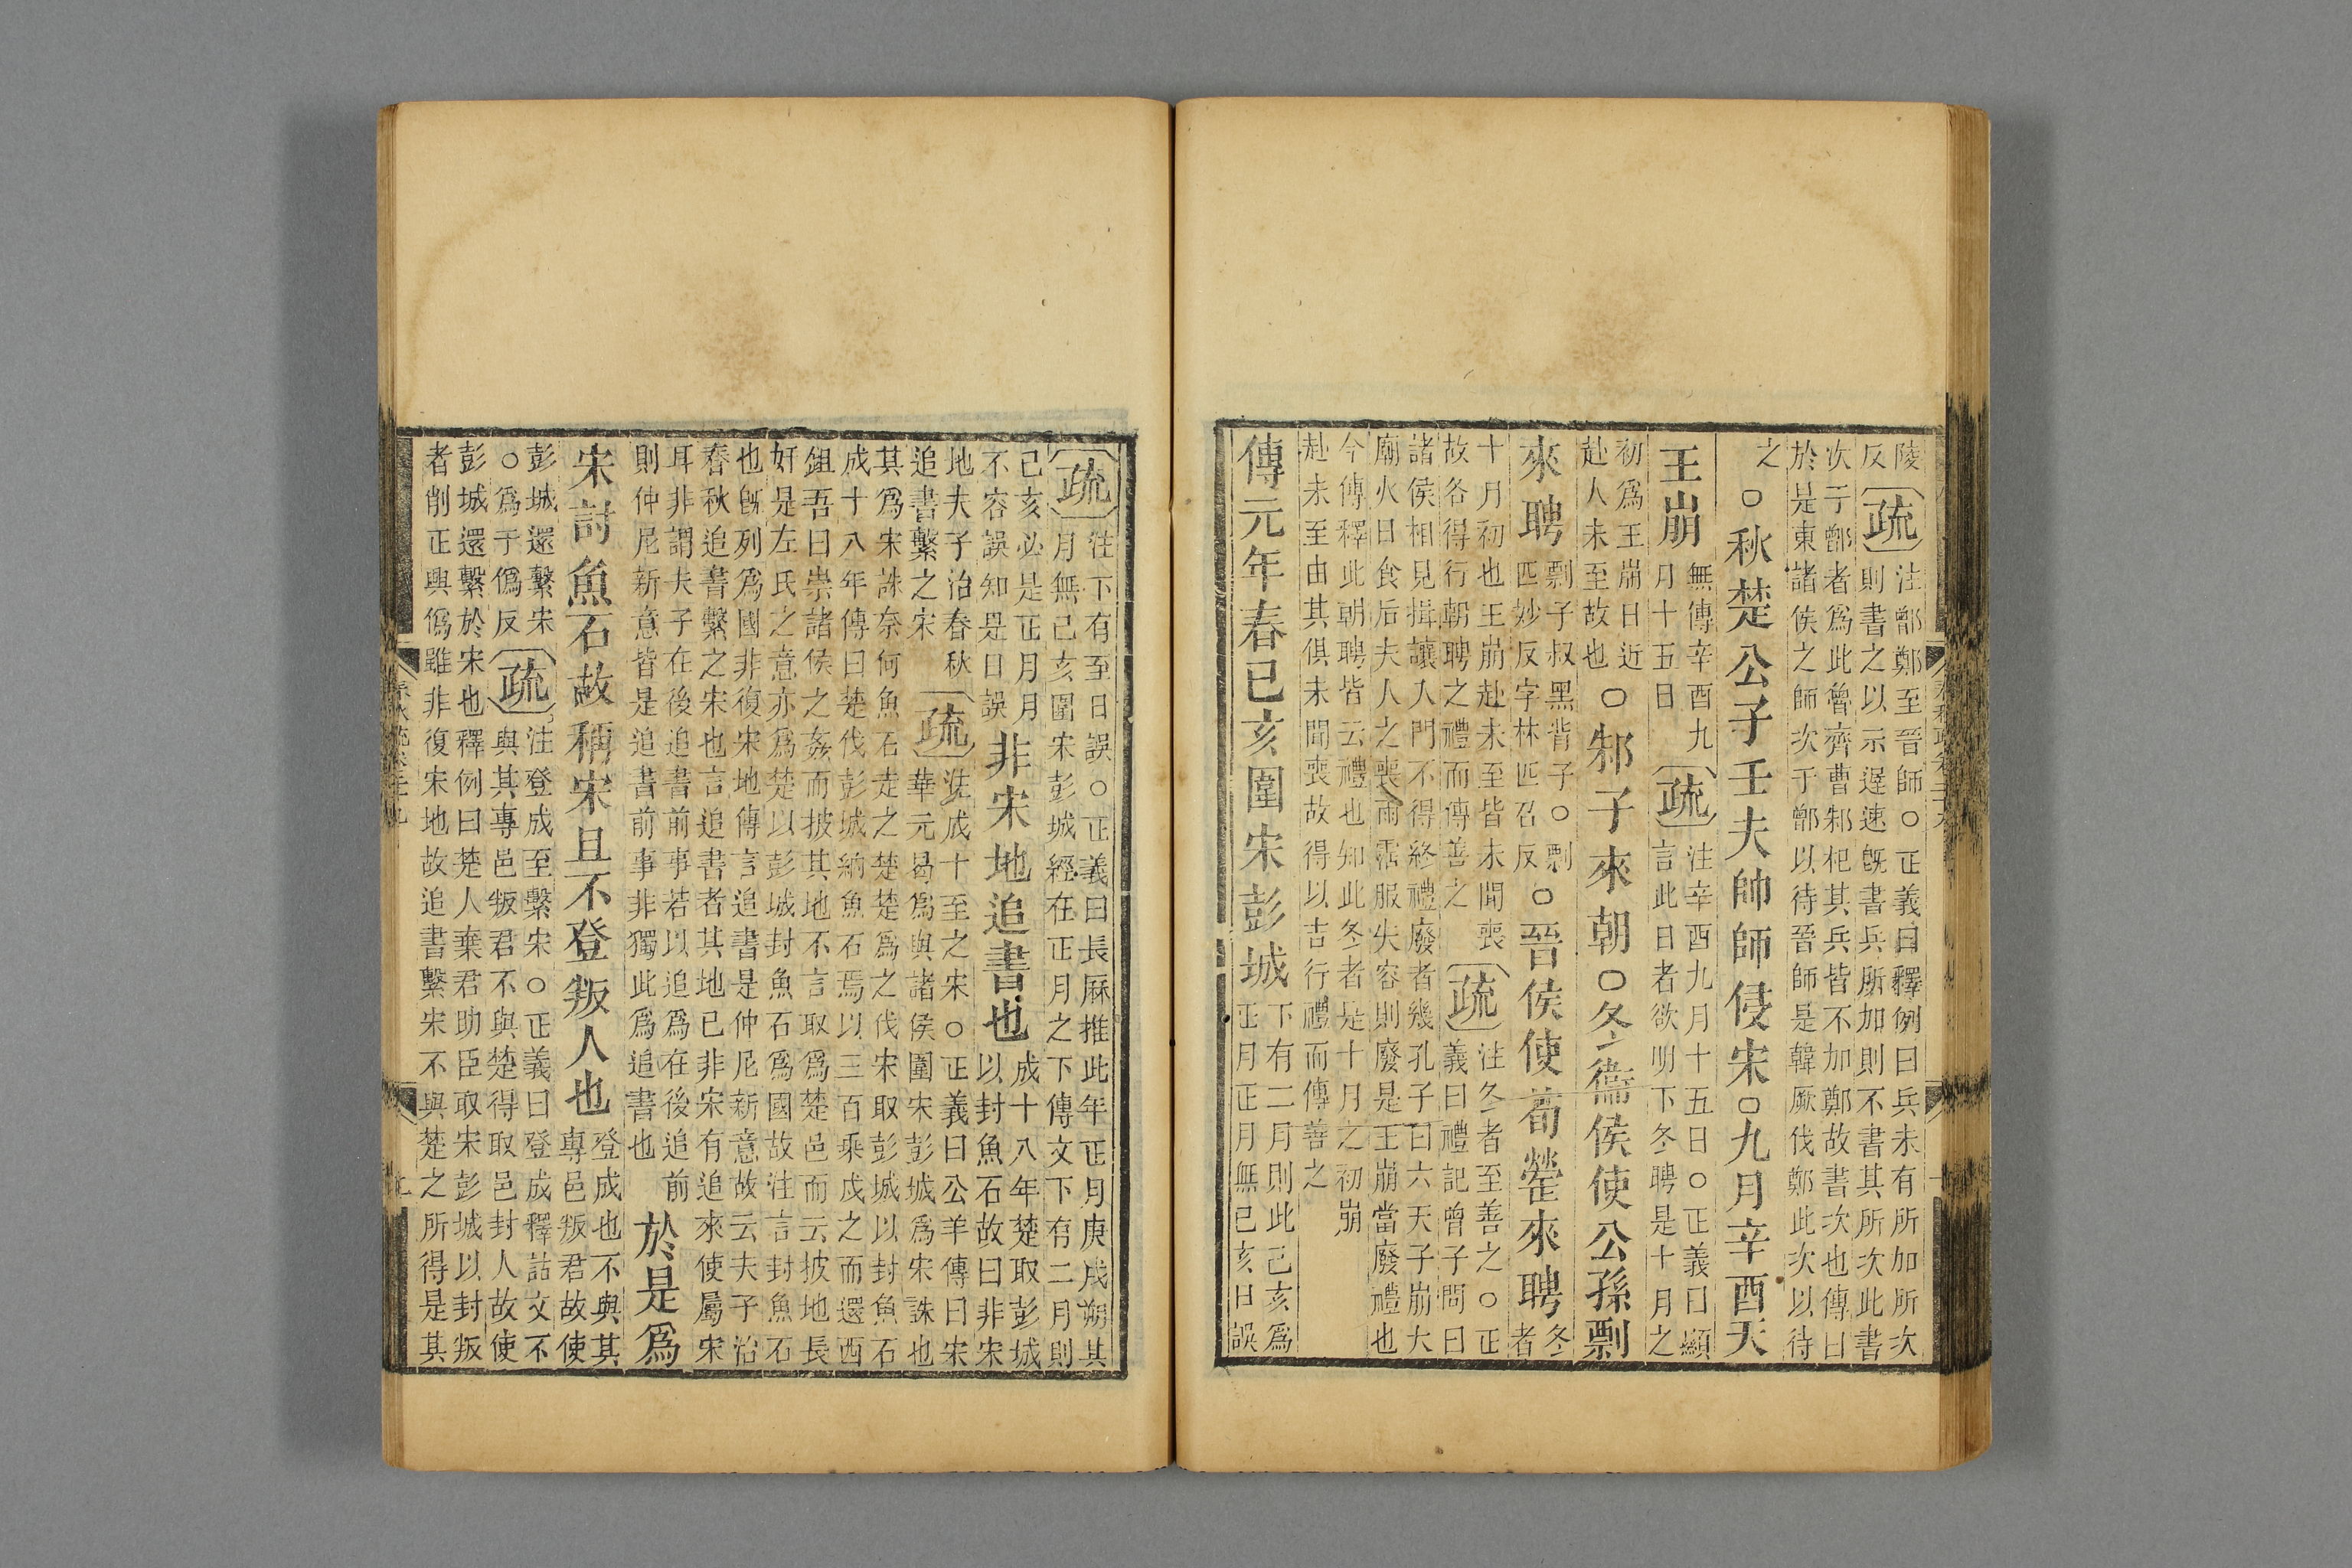 陵注鄫鄭至晉師○正義曰釋例曰兵未有所加所次
反〔疏〕則書之以示遲速旣書兵所加則不書其所次此書
次于鄫者爲此魯齊曹邾杞其兵皆不加鄭故書次也傳曰
於是東諸侯之師次于鄫以待晉師是韓厥伐鄭此次以待
之○秋楚公子壬夫帥師侵宋○九月辛酉天
王崩無傳辛酉九
月十五日〔疏〕注辛酉九月十五日○正義曰顯
言此日者欲明下冬聘是十月之
初爲王崩日近
赴人未至故也○邾子來朝○冬衞侯使公孫剽
來聘剽子叔黑背子○剽
匹妙反字林匹召反○晉侯使荀罃來聘冬
者
十月初也王崩赴未至皆未聞喪
故各得行朝聘之禮而傳善之〔疏〕注冬者至善之○正
義曰禮記曾子問曰
諸侯相見揖讓入門不得終禮廢者幾孔子曰六天子崩大
廟火日食后夫人之喪雨霑服失容則廢是王崩當廢禮也
今傳釋此朝聘皆云禮也知此冬者是十月之初崩
赴未至由其俱未聞喪故得以吉行禮而傳善之
傳元年春己亥圍宋彭城下有二月則此己亥爲
正月正月無己亥日誤
〔疏〕注下有至日誤○正義曰長厤推此年正月庚戌朔其
月無己亥圍宋彭城經在正月之下傳文下有二月則
己亥必是正月月
不容誤知是日誤非宋地追書也成十八年楚取彭城
以封魚石故曰非宋
地夫子治春秋
追書繫之宋〔疏〕注成十至之宋○正義曰公羊傳曰宋
華元曷爲與諸侯圍宋彭城爲宋誅也
其爲宋誅奈何魚石走之楚楚爲之伐宋取彭城以封魚石
成十八年傳曰楚伐彭城納魚石焉以三百乘戍之而還西
鉏吾曰崇諸侯之姦而披其地不言取爲楚邑而云披地長
奸是左氏之意亦爲楚以彭城封魚石爲國故注言封魚石
也旣列爲國非復宋地傳言追書是仲尼新意故云夫子治
春秋追書繫之宋也言追書者其地已非宋有追來使屬宋
耳非謂夫子在後追書前事若以追爲在後追前
則仲尼新意皆是追書前事非獨此爲追書也於是爲
宋討魚石故稱宋且不登叛人也登成也不與其
專邑叛君故使
彭城還繫宋
○爲于僞反〔疏〕注登成至繫宋○正義曰登成釋詁文不
與其專邑叛君不與楚得取邑封人故使
彭城還繫於宋也釋例曰楚人棄君助臣取宋彭城以封叛
者削正興僞雖非復宋地故追書繫宋不與楚之所得是其